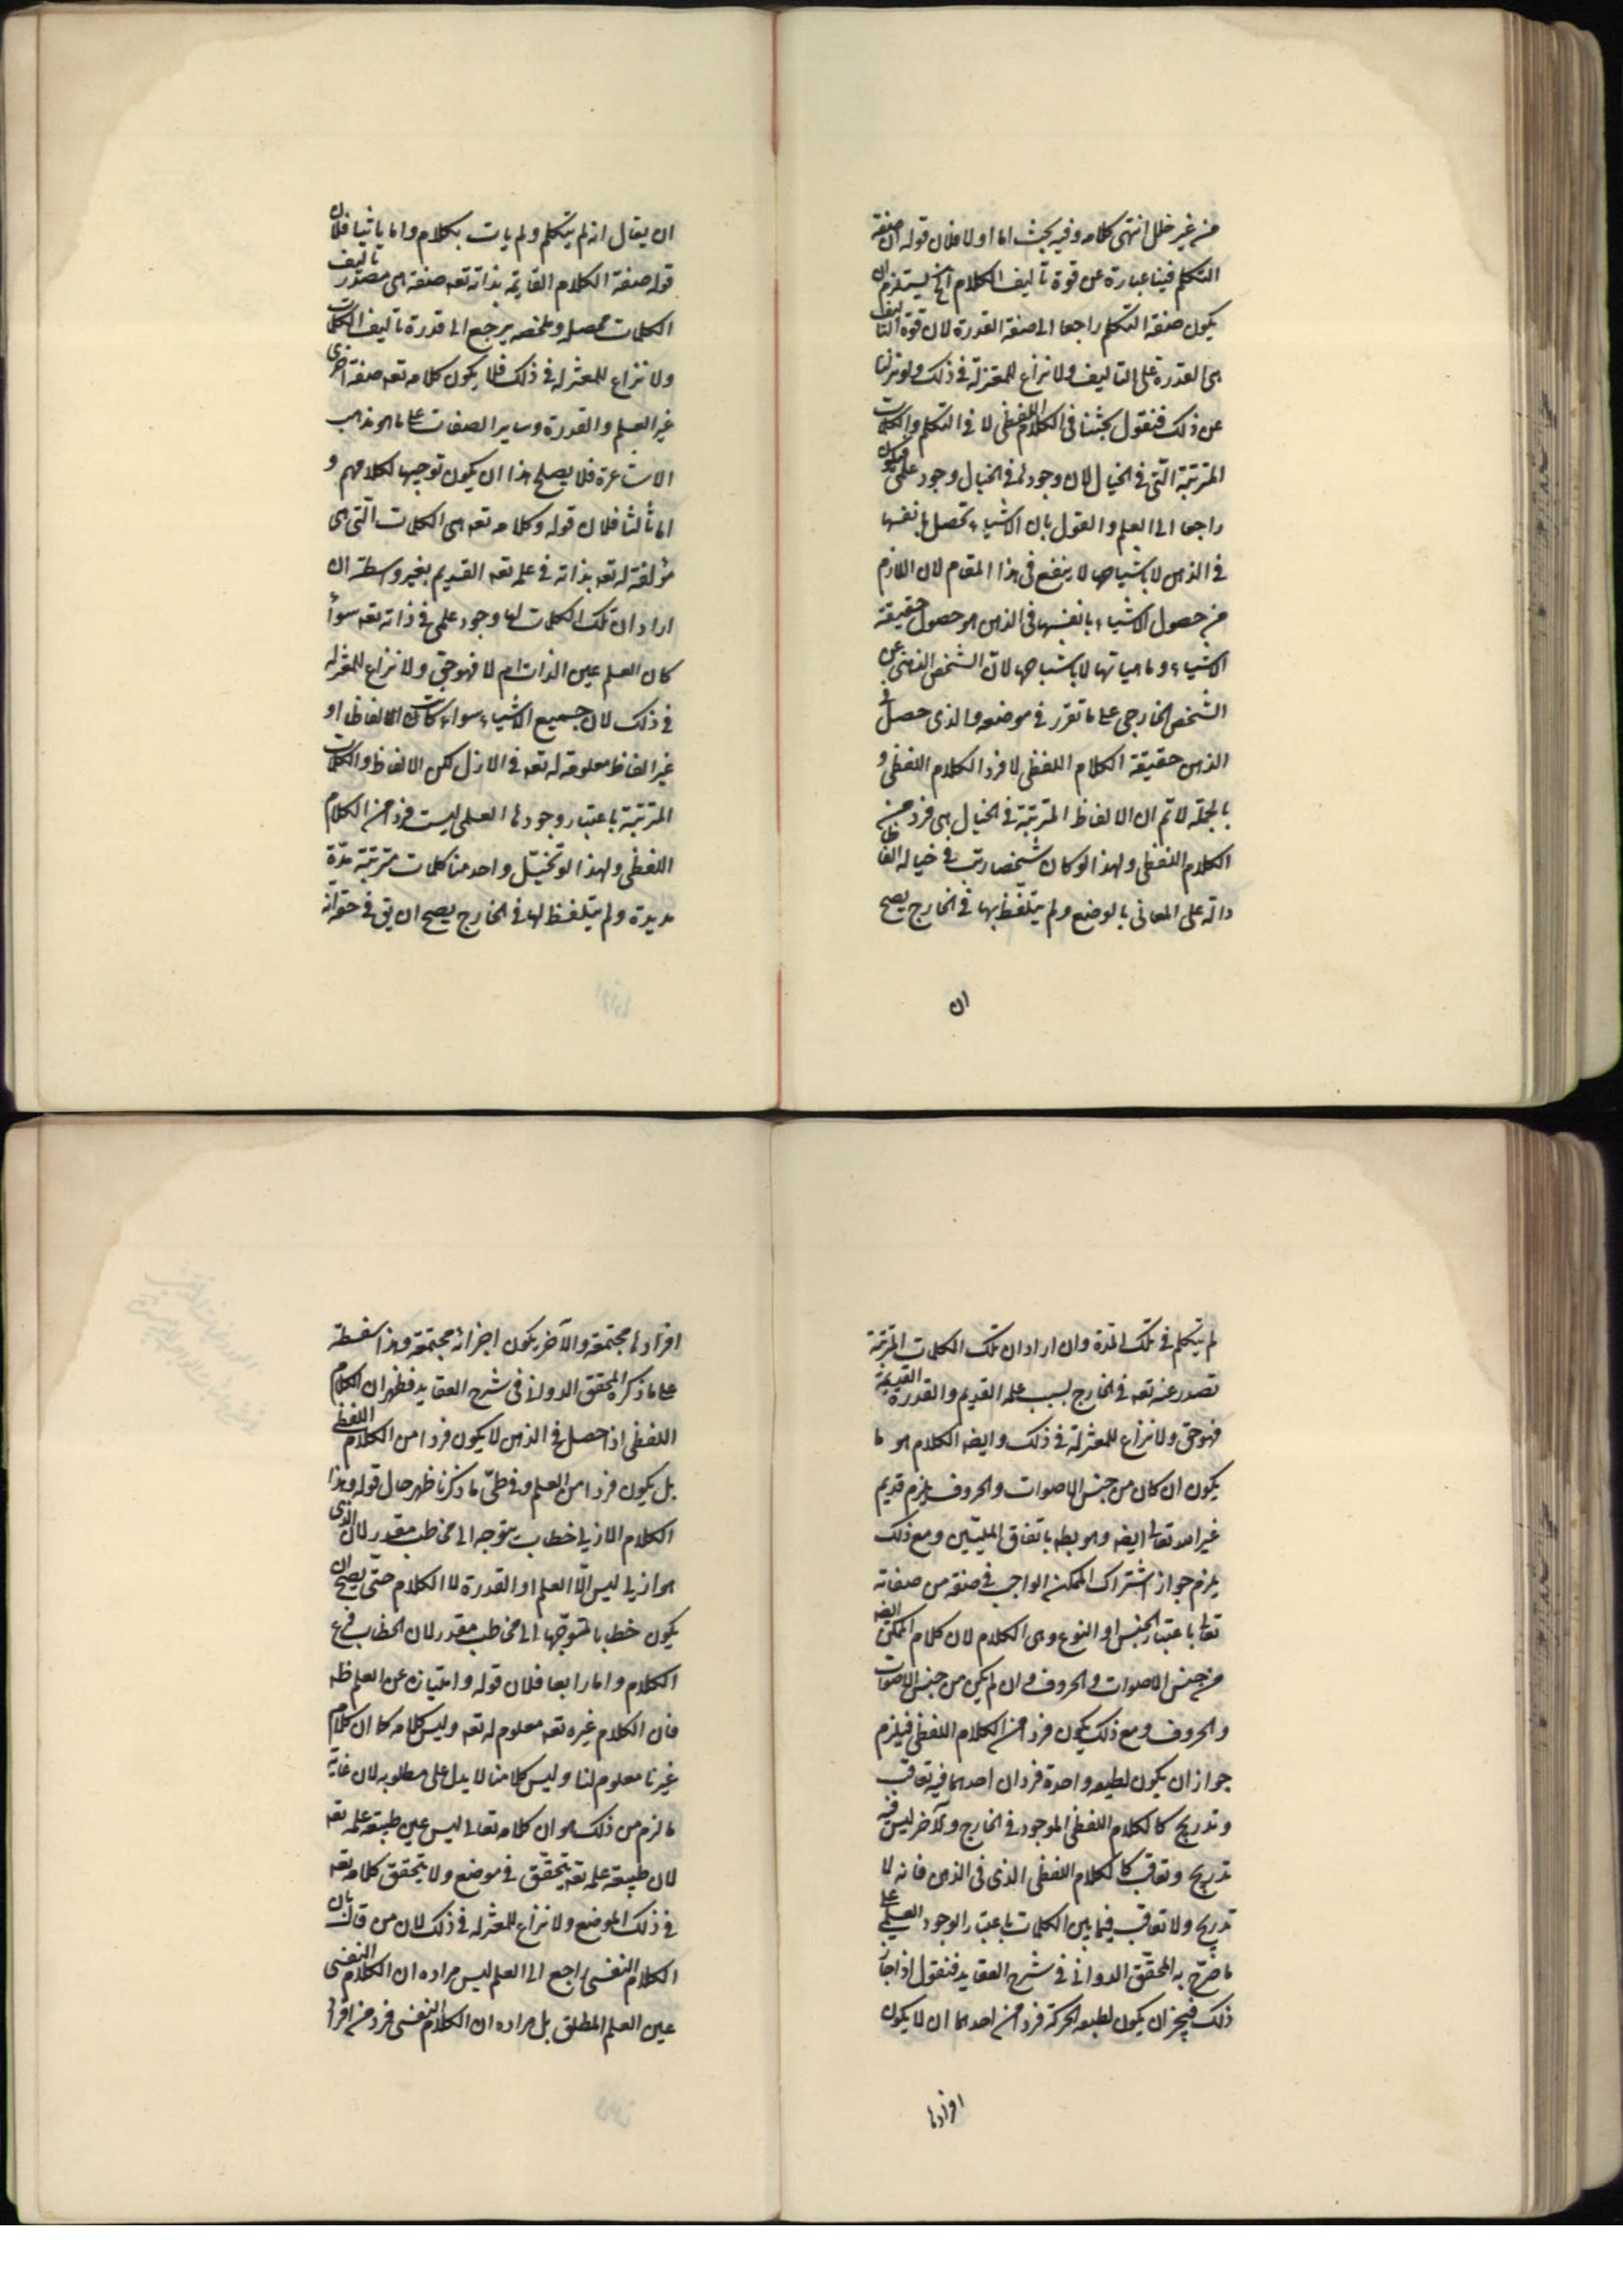 من غير خلل انتهى كلامه وفيه بحث اما اولا فلان قوله ان صفة
التكلم فينا عبارة عن قوة تأليف الكلام الخ يستلزم ان
يكون صفة التكلم راجعا الى صفة القدرة لان قوة التأليف
هى القدرة على التاليف ولا نزاع للمعتزلة فى ذلك ولو نزلنا
عن ذلك فنقول بحثنا فى الكلام اللفظى لا فى التكلم والكلمات
المترتبة التى فى الخيال لان وجودها فى الخيال وجود علمى فيكون
راجعا الى العلم والقول بان الاشياء تحصل بانفسها
فى الذهن لا باشباحها لا ينفع فى هذا المقام لان اللازم
من حصول الاشياء بانفسها فى الذهن هو حصول حقيقة
الاشياء وماهياتها لا باشباحها لان الشخص الذهنى عن
الشخص الخارجى على ما تقرر فى موضعه والذى حصل فى
الذهن حقيقة الكلام اللفظى لا فرد الكلام اللفظى و
بالجملة لا تم ان الالفاظ المترتبة فى الخيال هى فرد من
الكلام اللفظى ولهذا لو كان شخصا رتب فى خياله الفاظا
دالة على المعانى بالوضع ولم يتلفظ بها فى الخارج يصح
ان
ان يقال انه لم يتكلم ولم يات بكلام واما ثانيا فلان
قوله صفة الكلام القايمة بذاته تعه صفة هى مصدر تاليف
الكلمات محصله وملخصه يرجع الى قدرة تاليف الكلمات
ولا نزاع للمعتزله فى ذلك فلا يكون كلامه تعه صفة اخرى
غير العلم والقدرة وساير الصفات على ما هو مذهب
الاشاعرة فلا يصلح هذا ان يكون توجيها لكلامهم و
اما ثالثا فلان قوله وكلامه تعه هى الكلمات التى هى
مؤلفة له تعه بذاته فى علمه تعه القديم بغير واسطة ان
اراد ان تلك الكلمات لها وجود علمى فى ذاته تعه سوأ
كان العلم عين الذات ام لا فهو حق ولا نزاع للمعتزله
فى ذلك لان جميع الاشياء سواء كانت الالفاظ او
غير الفاظ معلومة له تعه فى الازل لكن الالفاظ والكلمات
المترتبة باعتبار وجودها العلمى ليست فردا من الكلام
اللفظى ولهذا لو تخيّل واحد منا كلمات مترتبة مدّة
مديدة ولم يتلفظ لها فى الخارج يصح ان يق فى حقه انه
لم يتكلم فى تلك المدة وان اراد ان تلك الكلمات المترتبة
تصدر عنه تعه فى الخارج بسبب علمه القديم والقدرة القديمة
فهو حق ولا نزاع للمعتزلة فى ذلك وايضه الكلام هو ما
يكون ان كان من جنس الاصوات والحروف يلزم قديم
غير الله تعالى ايضه وهو بطه باتفاق المليّين ومع ذلك
يلزم جواز اشتراك الممكن الواجب فى صفة من صفاته
تعالى باعتبار الجنس او النوع وهى الكلام لان كلام الممكن ايضه
من جنس الاصوات والحروف وان لم يكن من جنس الاصوات
والحروف ومع ذلك يكون فردا من الكلام اللفظى فيلزم
جواز ان يكون لطبيعه واحدة فردان احدهما فيه تعاقب
وتدريج كالكلام اللفظى الموجود فى الخارج والآخر ليس فيه
تدريج وتعاقب كالكلام اللفظى الذى فى الذهن فانه لا
تدريج ولا تعاقب فيما بين الكلمات باعتبار الوجود العلمى على
ما صرّح به المحقق الدوانى فى شرح العقايد فنقول اذا جاز
ذلك فيجز ان يكون لطبيعه الحركة فردا من احدهما ان لا يكون
افرادها
افرادها مجتمعة والآخر يكون اجزائه مجتمعة وهذا سفسطة
على ما ذكره المحقق الدوانى فى شرح العقايد فظهر ان الكلام
اللفظى اذا حصل فى الذهن لا يكون فردا من الكلام اللفظى
بل يكون فردا من العلم وفى طىّ ما ذكرنا ظهر حال قوله وهذا
الكلام الازلى خطاب متوجه الى مخاطب مقدر لان الذى
هو ازلى ليس الّا العلم او القدرة لا الكلام حتى يصح ان
يكون خطابا متوجّها الى مخاطب مقدر لان الخطاب فرع
الكلام واما رابعا فلان قوله وامتيازه عن العلم ظه
فان الكلام غيره تعه معلوم له تعه وليس كلامه كما ان كلام
غيرنا معلوم لنا وليس كلامنا لا يدل على مطلوبه لان غاية
ما لزم من ذلك هو ان كلامه تعالى ليس عين طبيعة علمه تعه
لان طبيعة علمه تعه يتحقق فى موضع ولا يتحقق كلامه تعه
فى ذلك الموضع ولا نزاع للمعتزله فى ذلك لان من قال بان
الكلام النفسى راجع الى العلم ليس مراده ان الكلام النفسى
عين العلم المطلق بل مراده ان الكلام النفسى فرد من افراد